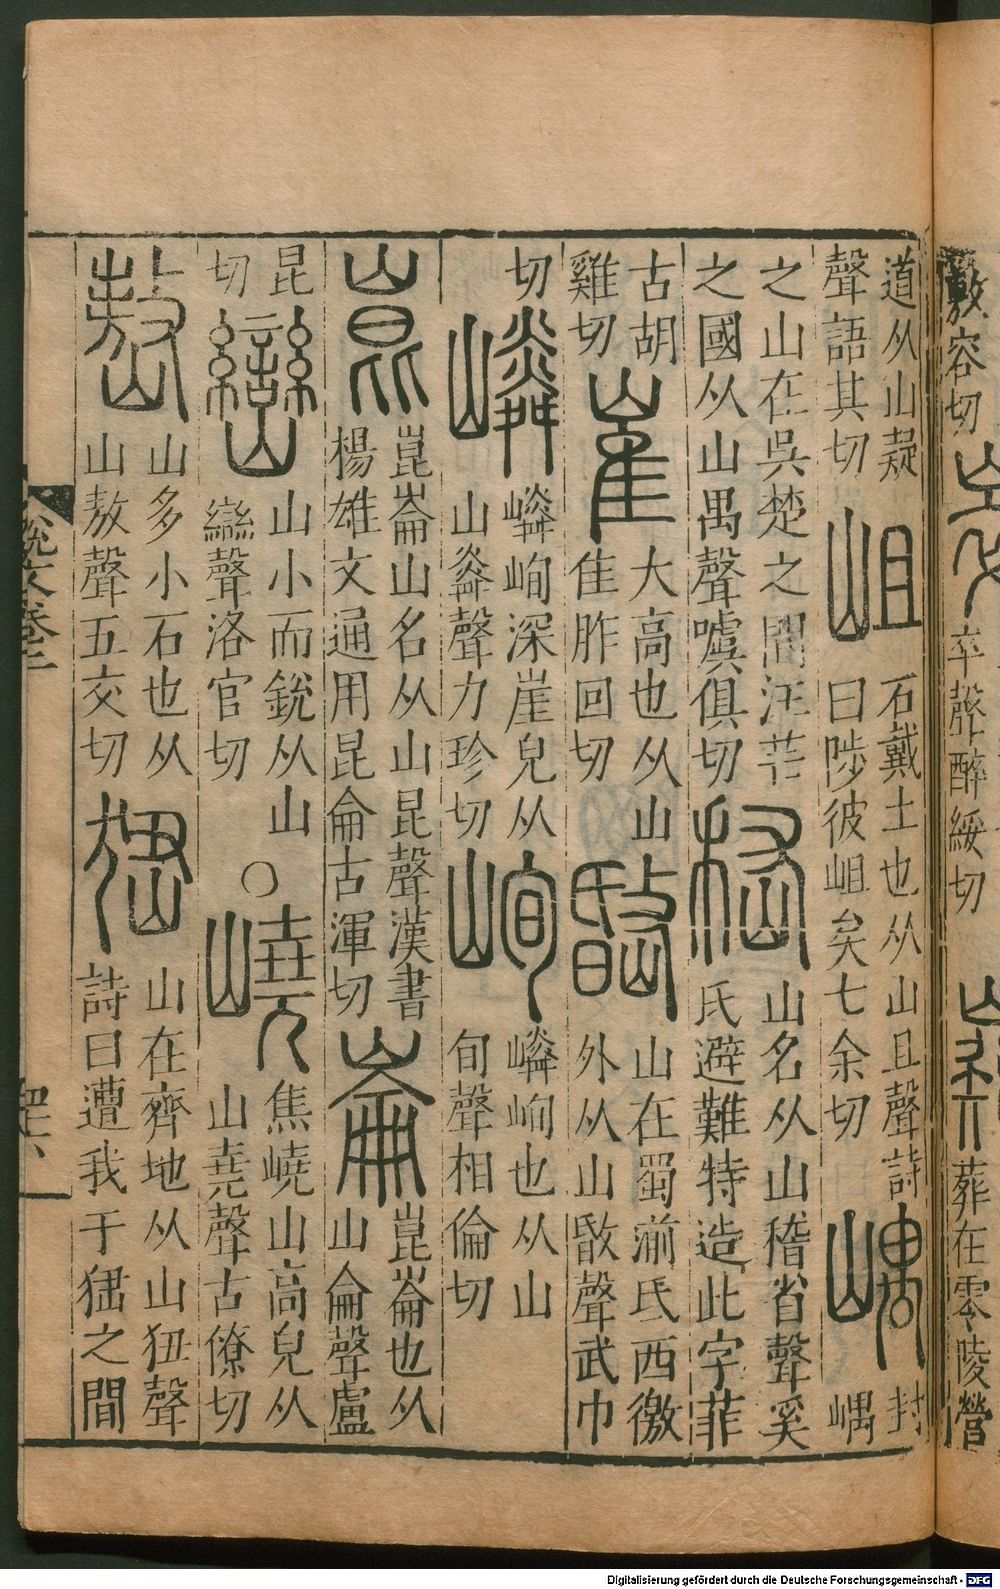 敷容切
卒聲醉綏切
葬在零陵營
道从山疑
聲語其切
岨
石戴土也从山且聲詩
曰陟彼岨矣七余切
嵎
封
嵎
之山在吳楚之間汪芒
之國从山禺聲噳俱切
嵇
山名从山稽省聲奚
氏避難特造此字菲
古胡
雞切
崔
大高也从山
隹胙回切
山在蜀湔氐西徼
外从山敯聲武巾
切
嶙
嶙峋深崖皃从
山粦聲力珍切
峋
嶙峋也从山
旬聲相倫切
崑
崑崙山名从山昆聲漢書
楊雄文通用昆侖古渾切
崙
崑崙也从
山侖聲盧
昆
切
巒
山小而銳从山
䜌聲洛官切
○
嶢
焦嶢山高皃从
山堯聲古僚切
嶅
山多小石也从
山敖聲五交切
峱
山在齊地从山狃聲
詩曰遭我于峱之間
說文卷
Digitalisierung gefördert durch die Deutsche Forschungsgemeinschaft - DFG